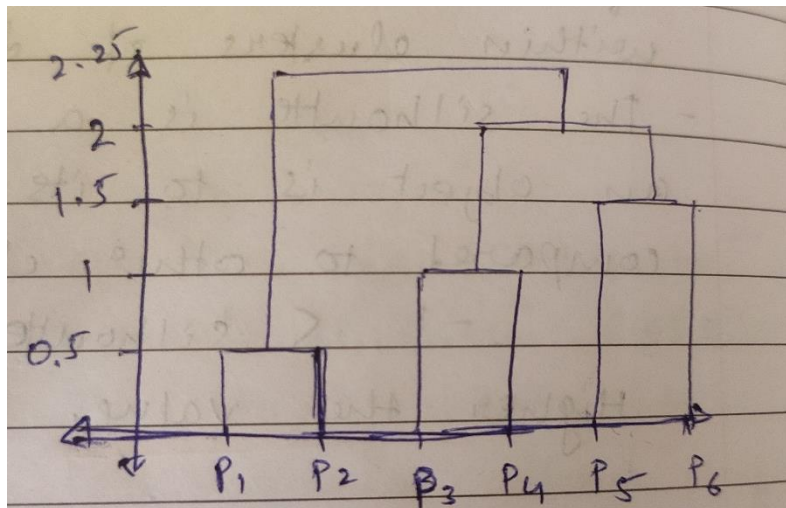 2.25
2
1.5
1
0.5
P1 P2 P3 P4 P5 P6